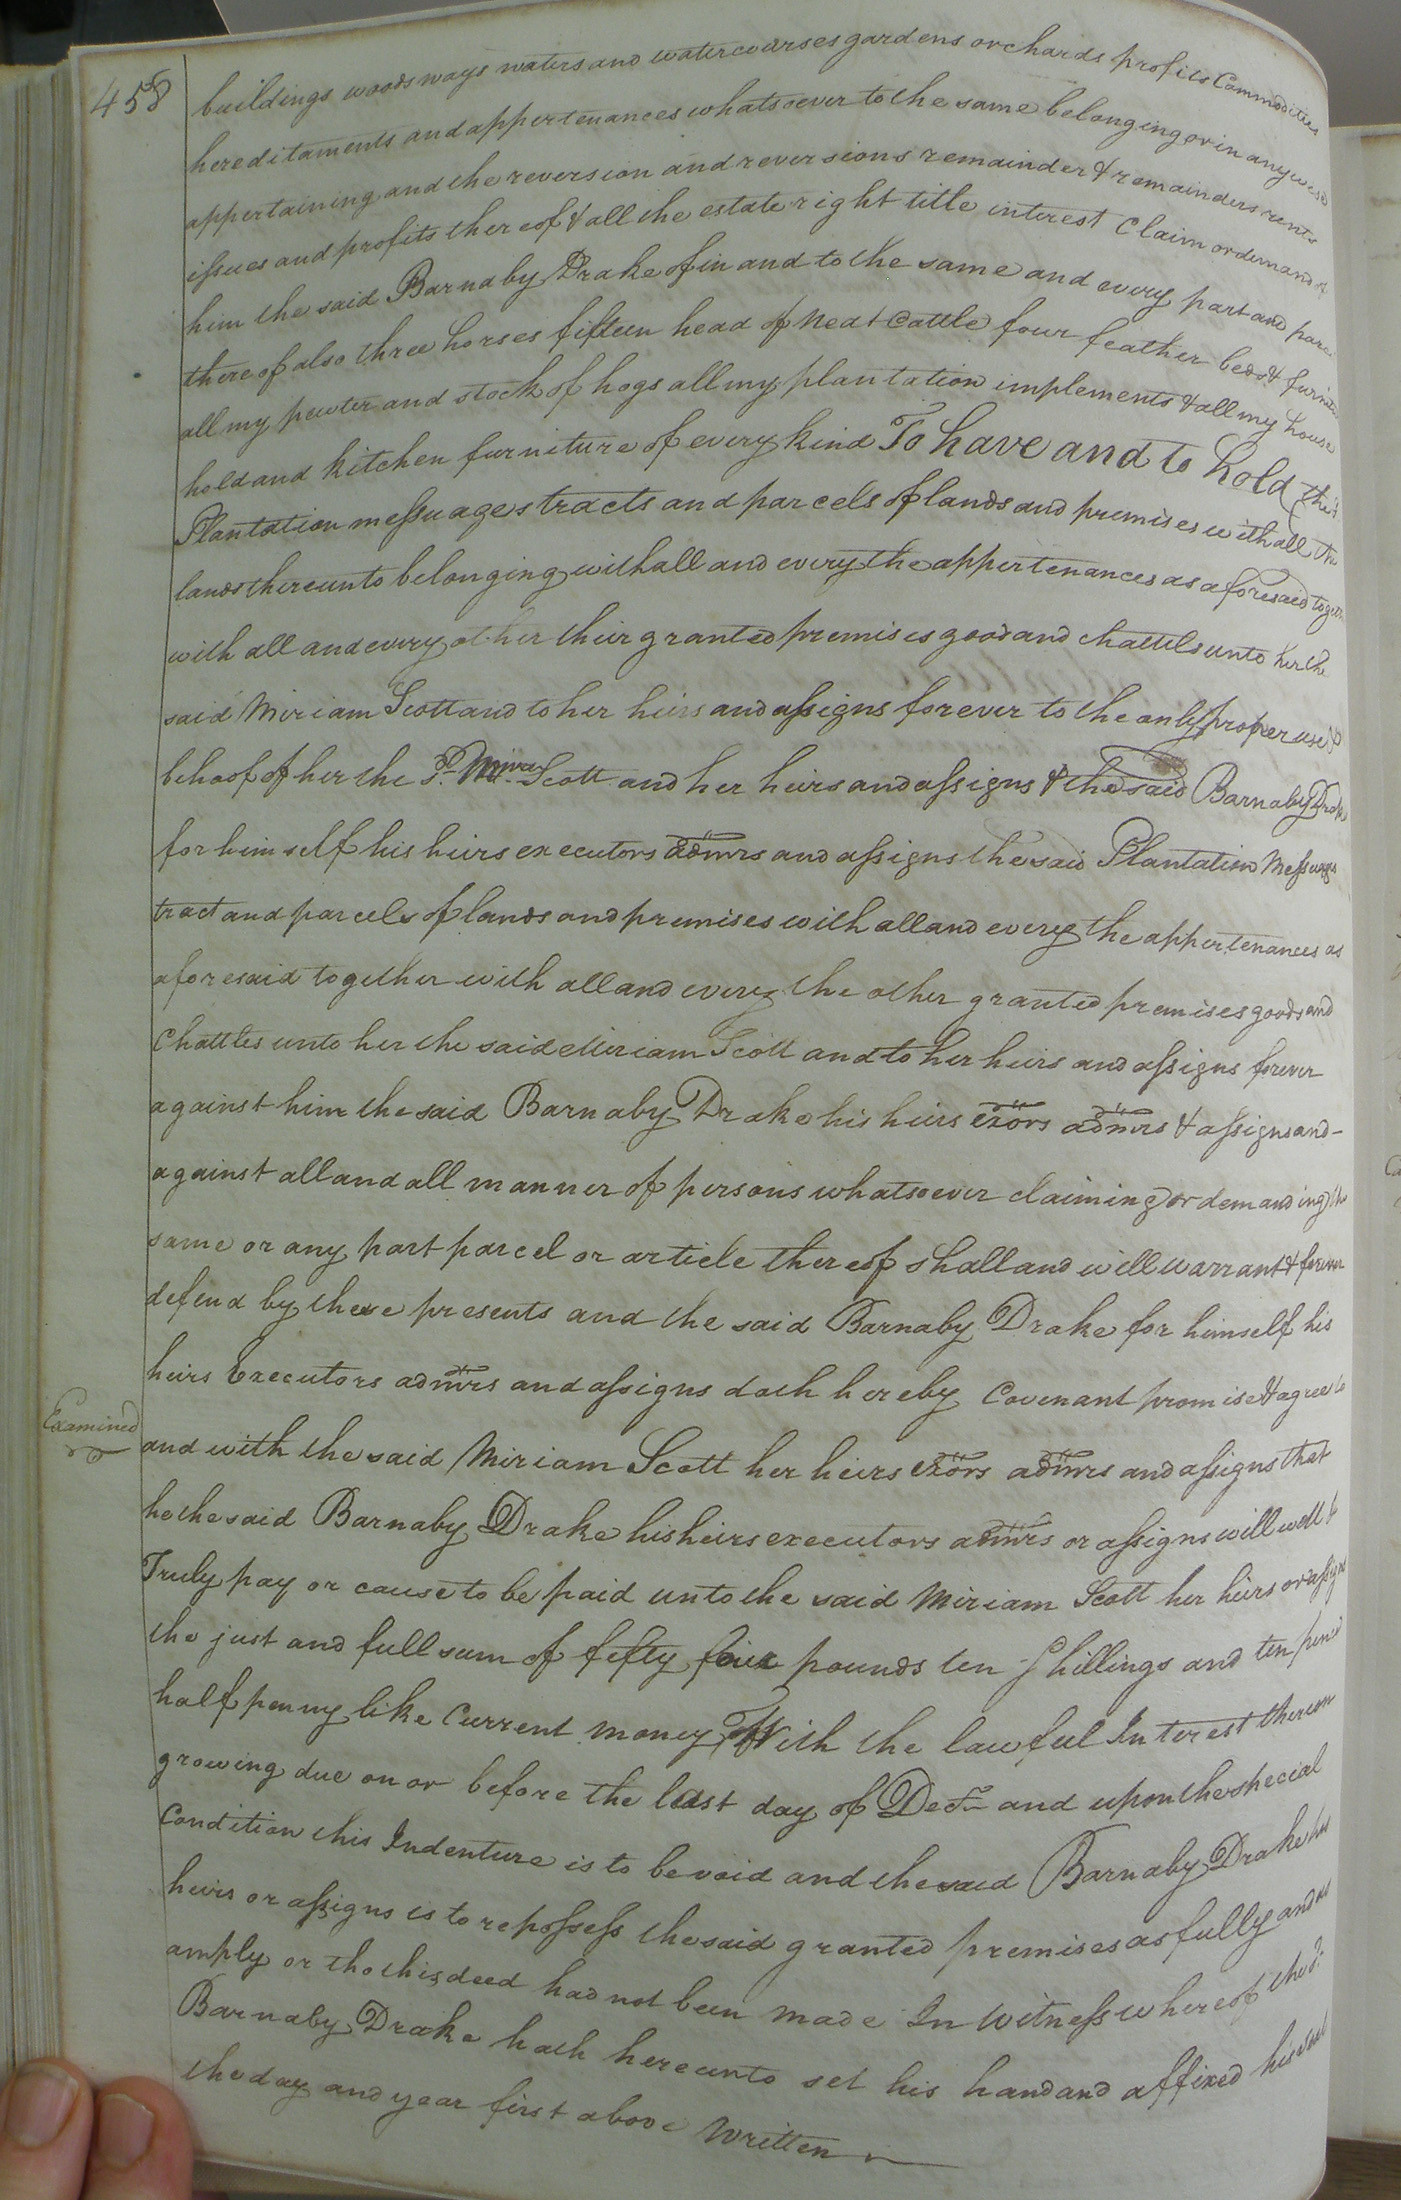 458
buildings woods ways waters and watercourses gardens orchards profits Commodities
hereditaments and appertenances whatsoever to the same belonging or in any wise
appertaining and the reversion and reversions remainder & remainders rents
issues and profits thereof & all the estate right title interest Claim or demand of
him the said Barnaby Drake of in and to the same and every part and parcel
thereof also three horses fifteen head of neat Cattle four feather beds & furniture
all my pewter and stock of hogs all my plantation implements & all my house
hold and kitchen furniture of every kind To have and to hold the sd
Plantation messuages tracts and parcels of lands and premises with all the
lands thereunto belonging with all and every the appertenances as aforesaid together
with all and every other their granted premises good and chattels unto her the
said Miriam Scott and to her heirs and assigns forever to the only proper use &
behoof of her the Sd. Miriam Scott and her heirs and assigns & the said Barnaby Drake
for himself his heirs executors admrs and assigns the said Plantation Messuages
tract and parcels of lands and premises with all and every the appertenances as
aforesaid together with all and every the other granted premises goods and
Chattles unto her the said Miriam Scott and to her heirs and assigns forever
against him the said Barnaby Drake his heirs exors admrs & assigns and -
against all and all manner of persons whatsoever claiming or demanding the
same or any part parcel or article thereof shall and will warrant & forever
defend by these presents and the said Barnaby Drake for himself his
heirs Executors admrs and assigns doth hereby Covenant promise & agree to
Examined
and with the said Miriam Scott her heirs exors admrs and assigns that
he the said Barnaby Drake his heirs executors admrs or assigns will well &
Truly pay or cause to be paid unto the said Miriam Scott her heirs or assigns
the just and full sum of fifty four pounds ten Shillings and ten pence
half penny like Current money With the lawful Interest thereon
growing due on or before the last day of Decr and upon the special
Condition this Indenture is to be void and the said Barnaby Drake his
heirs or assigns is to repossess the said granted premises as fully and as
amply or tho this deed had not been made In Witness whereof the sd
Barnaby Drake hath hereunto set his hand and affixed his seal
the day and year first above Written